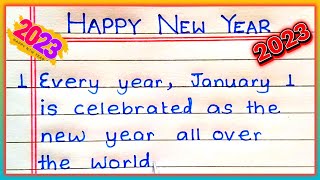 HAPPY NEW YEAR
2023
2023
1 Every year, January 1
is celebrated as the
new year all over
the world,